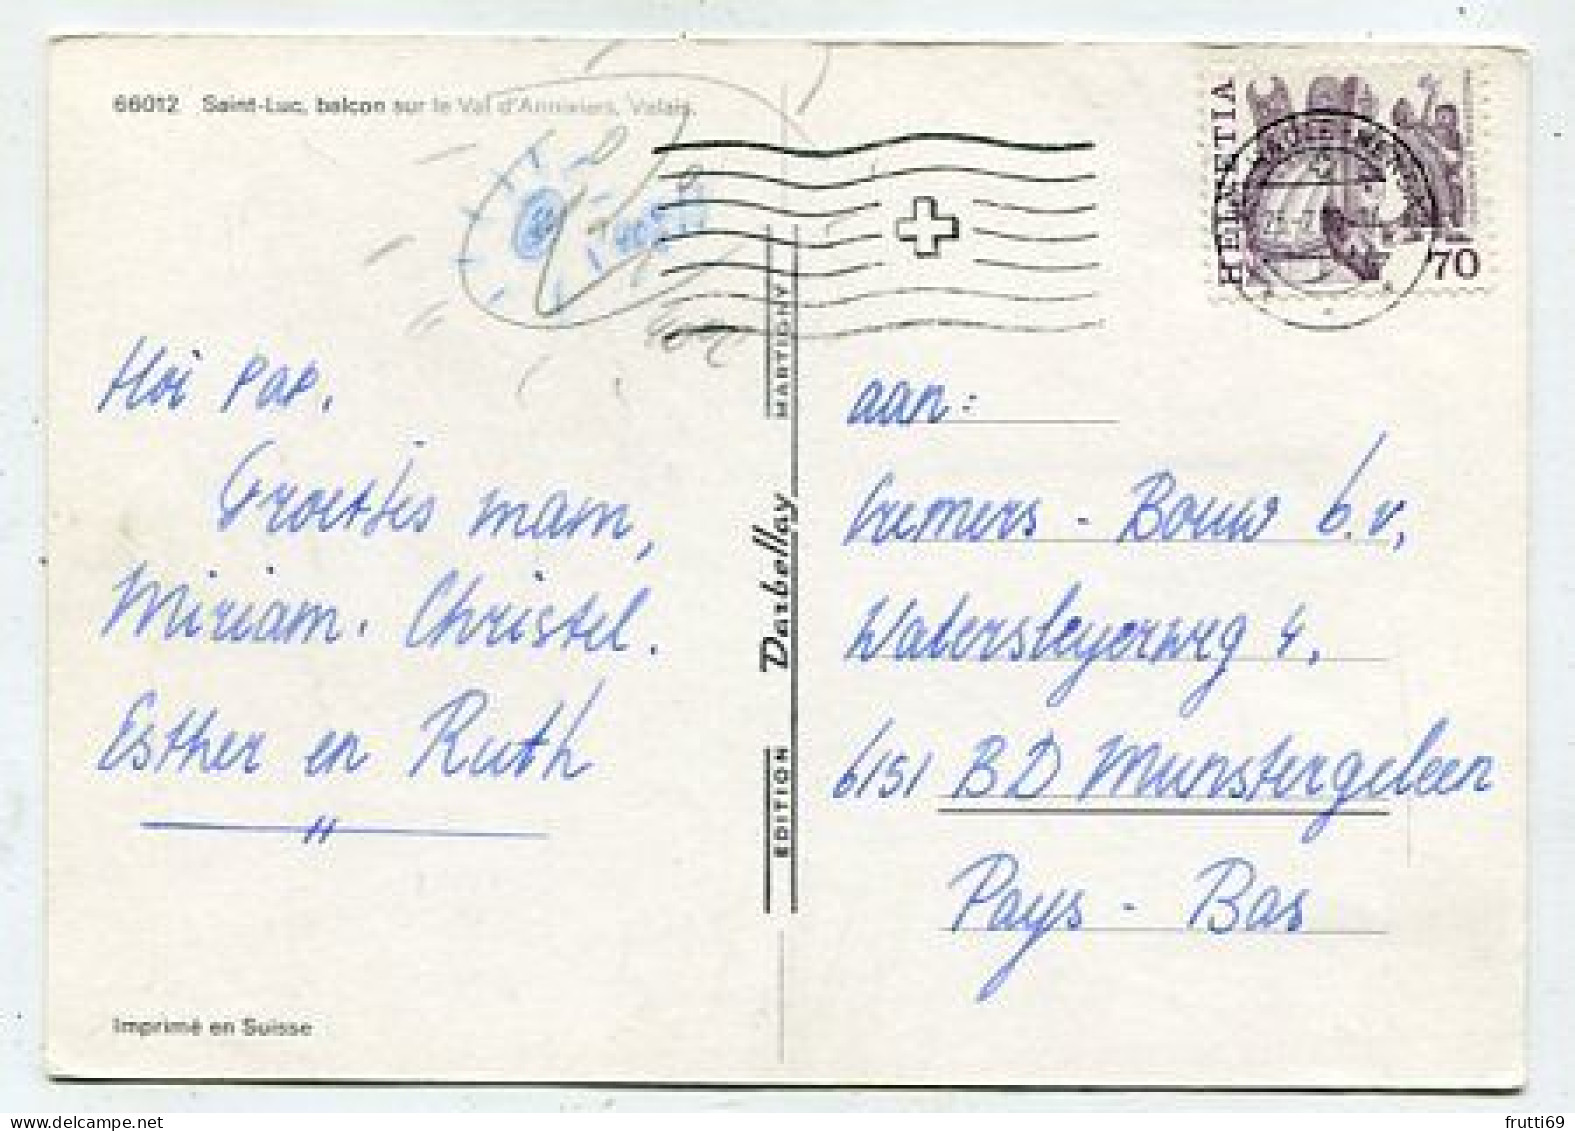 66012 Saint-Luc, balcon sur le Val d'Anniviers, Valais.
HELVETIA
70
Hoi Pap.
Groetjes mam,
Miriam. Christel.
Esther en Ruth
"
EDITION Darbellay MARTIGNY
aan:
Cremers - Bouw b.v,
Watersleyerweg 4,
6151 BD Munstergeleen
Pays - Bas
Imprimé en Suisse
frutti69